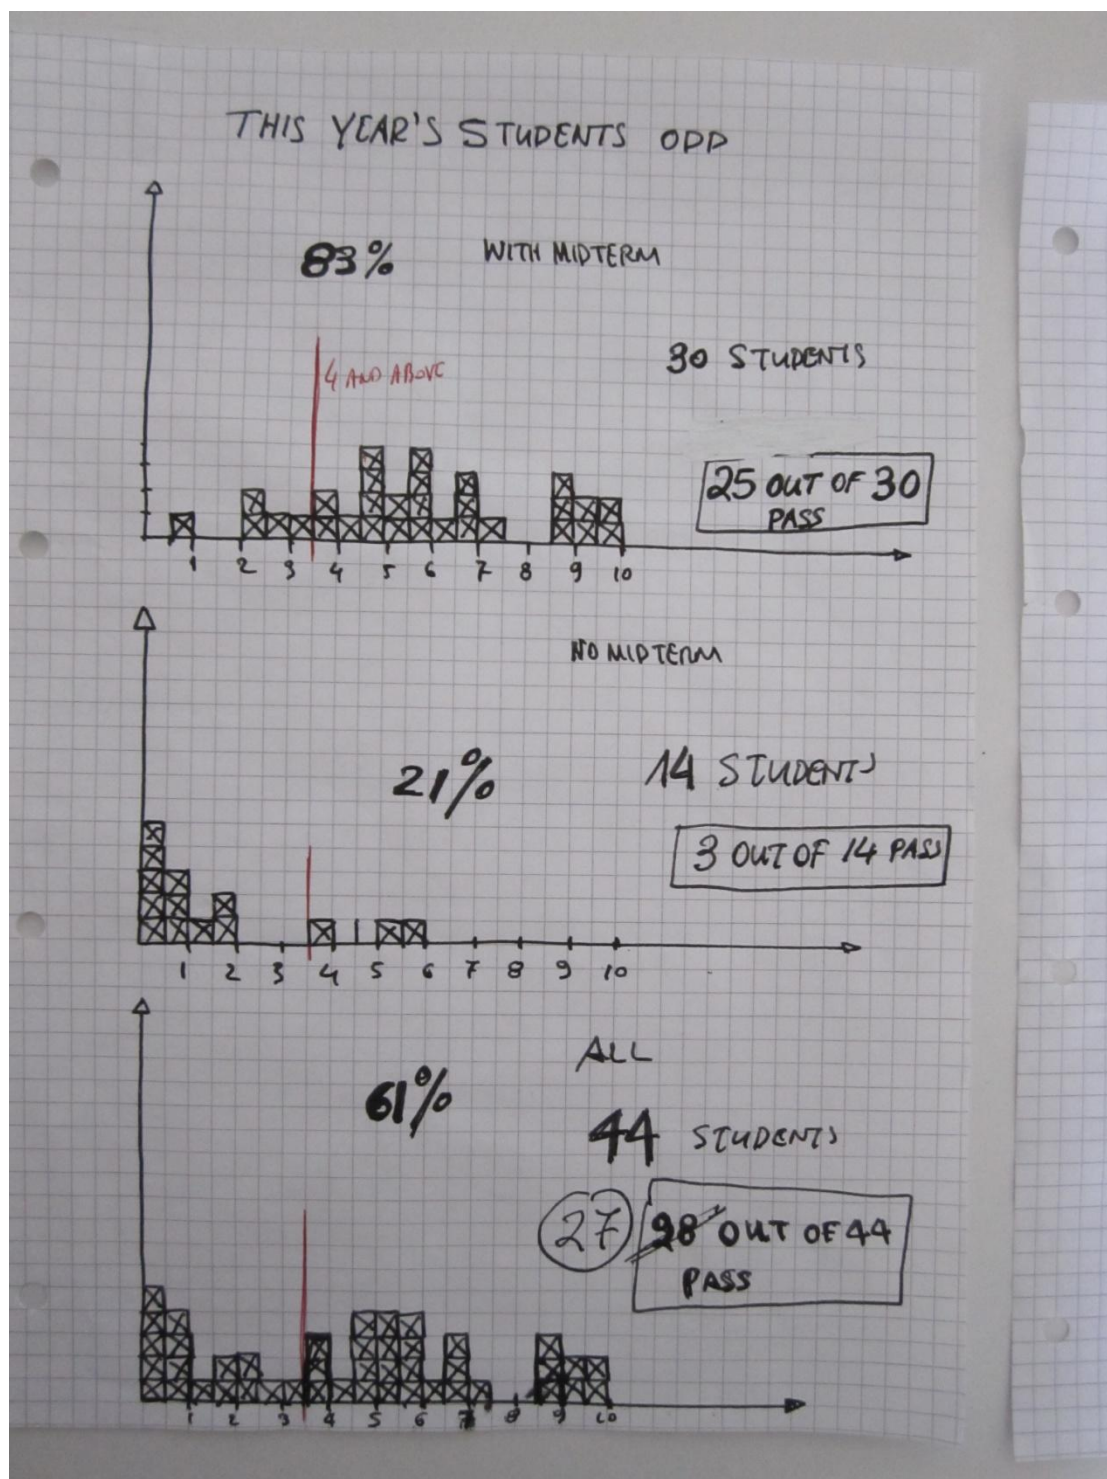 THIS YEAR'S STUDENTS ODD
83% WITH MIDTERM
30 STUDENTS
4 AND ABOVE
25 OUT OF 30
PASS
1 2 3 4 5 6 7 8 9 10
NO MIDTERM
21% 14 STUDENTS
3 OUT OF 14 PASS
1 2 3 4 5 6 7 8 9 10
ALL
61%
44 STUDENTS
27 28 OUT OF 44
PASS
1 2 3 4 5 6 7 8 9 10